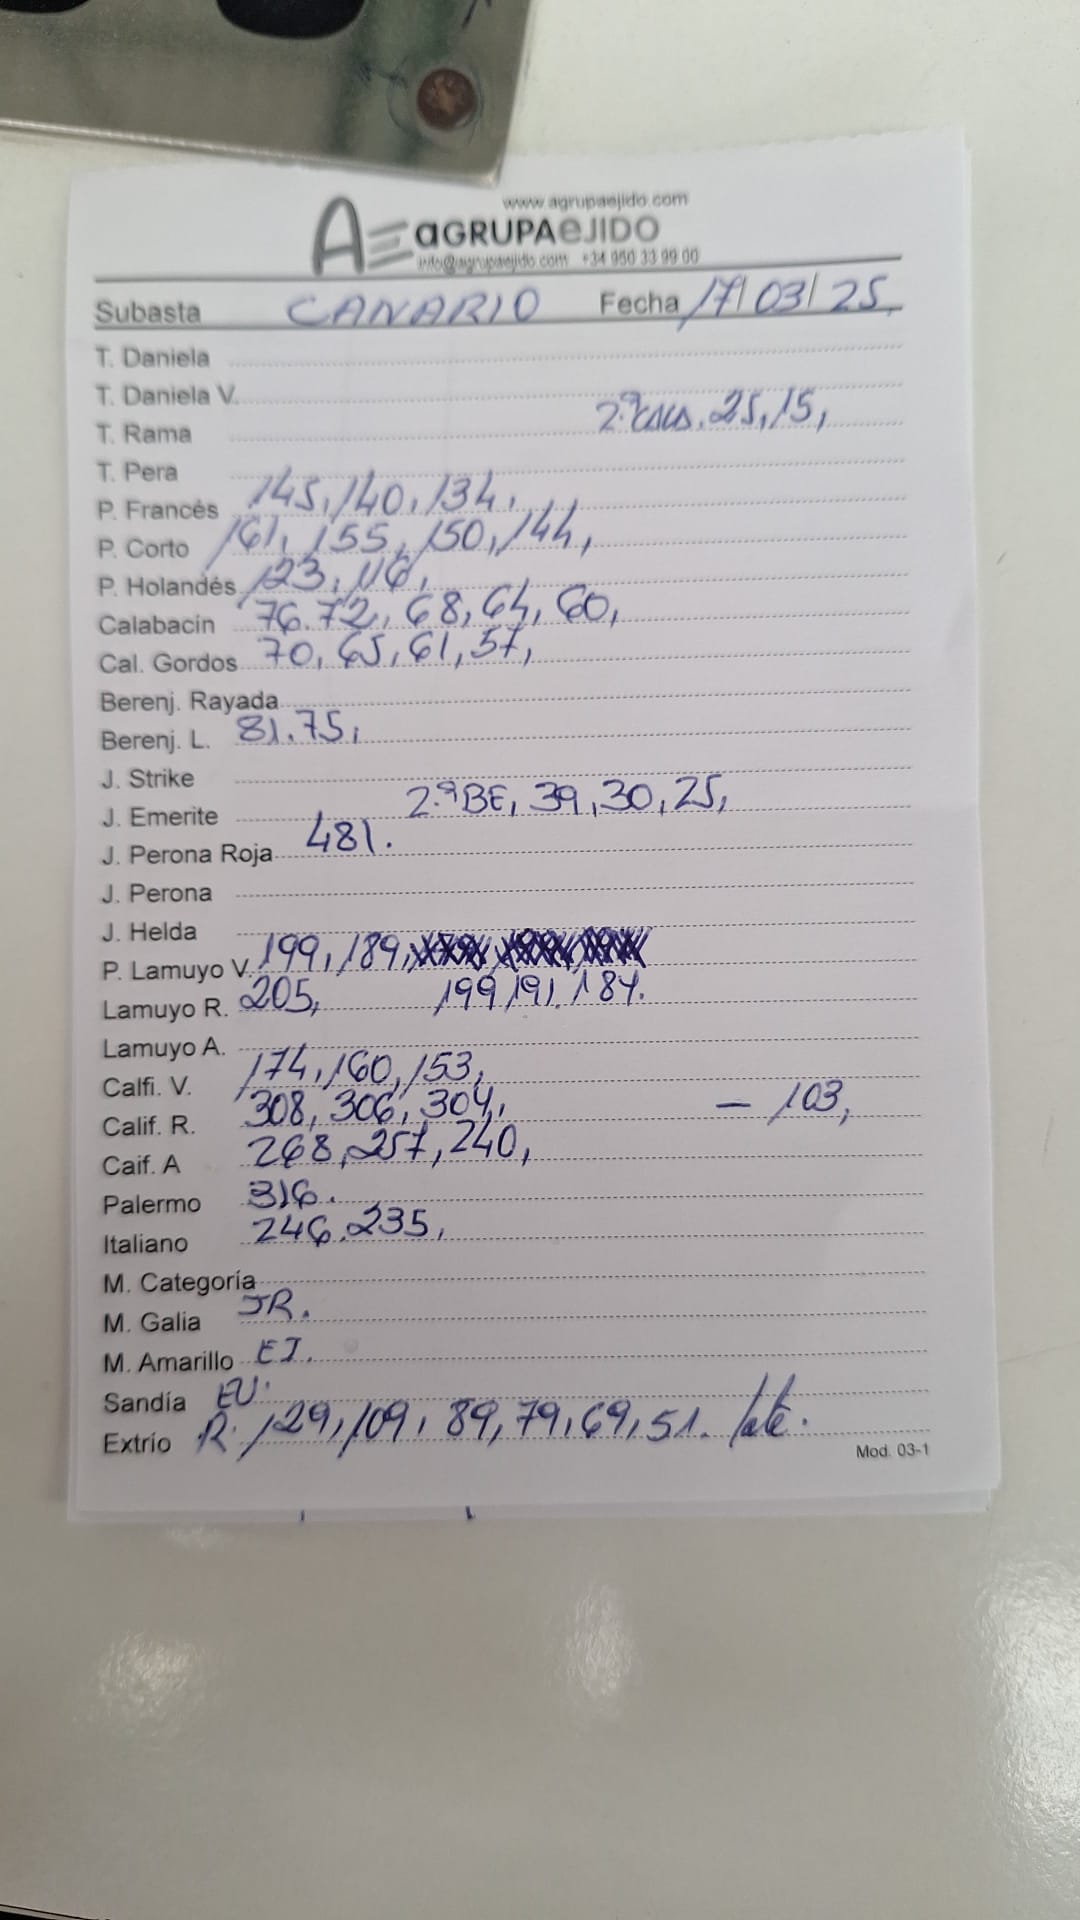 www.agrupaejido.com
AGRUPAEJIDO
info@agrupaejido.com +34 950 33 99 00
Subasta CANARIO Fecha 17/03/25.
T. Daniela
T. Daniela V.
T. Rama 2.ª 25, 15,
T. Pera
P. Francés 145, 140, 134,
P. Corto 161, 155, 150, 144,
P. Holandés 123, 116,
Calabacin 76. 72, 68, 64, 60,
Cal. Gordos 70, 65, 61, 57,
Berenj. Rayada
Berenj. L. 81. 75,
J. Strike
J. Emerite 2.ª BE, 39, 30, 25,
J. Perona Roja 481.
J. Perona
J. Helda
P. Lamuyo V. 199, 189,
Lamuyo R. 205, 199, 191, 184.
Lamuyo A.
Calfi. V. 174, 160, 153,
Calif. R. 308, 306, 304, - 103,
Caif. A 268, 257, 240,
Palermo 316.
Italiano 246. 235,
M. Categoría
M. Galia JR.
M. Amarillo EJ.
Sandía EU.
Extrío R. 129, 109, 89, 79, 69, 51.
Mod. 03-1